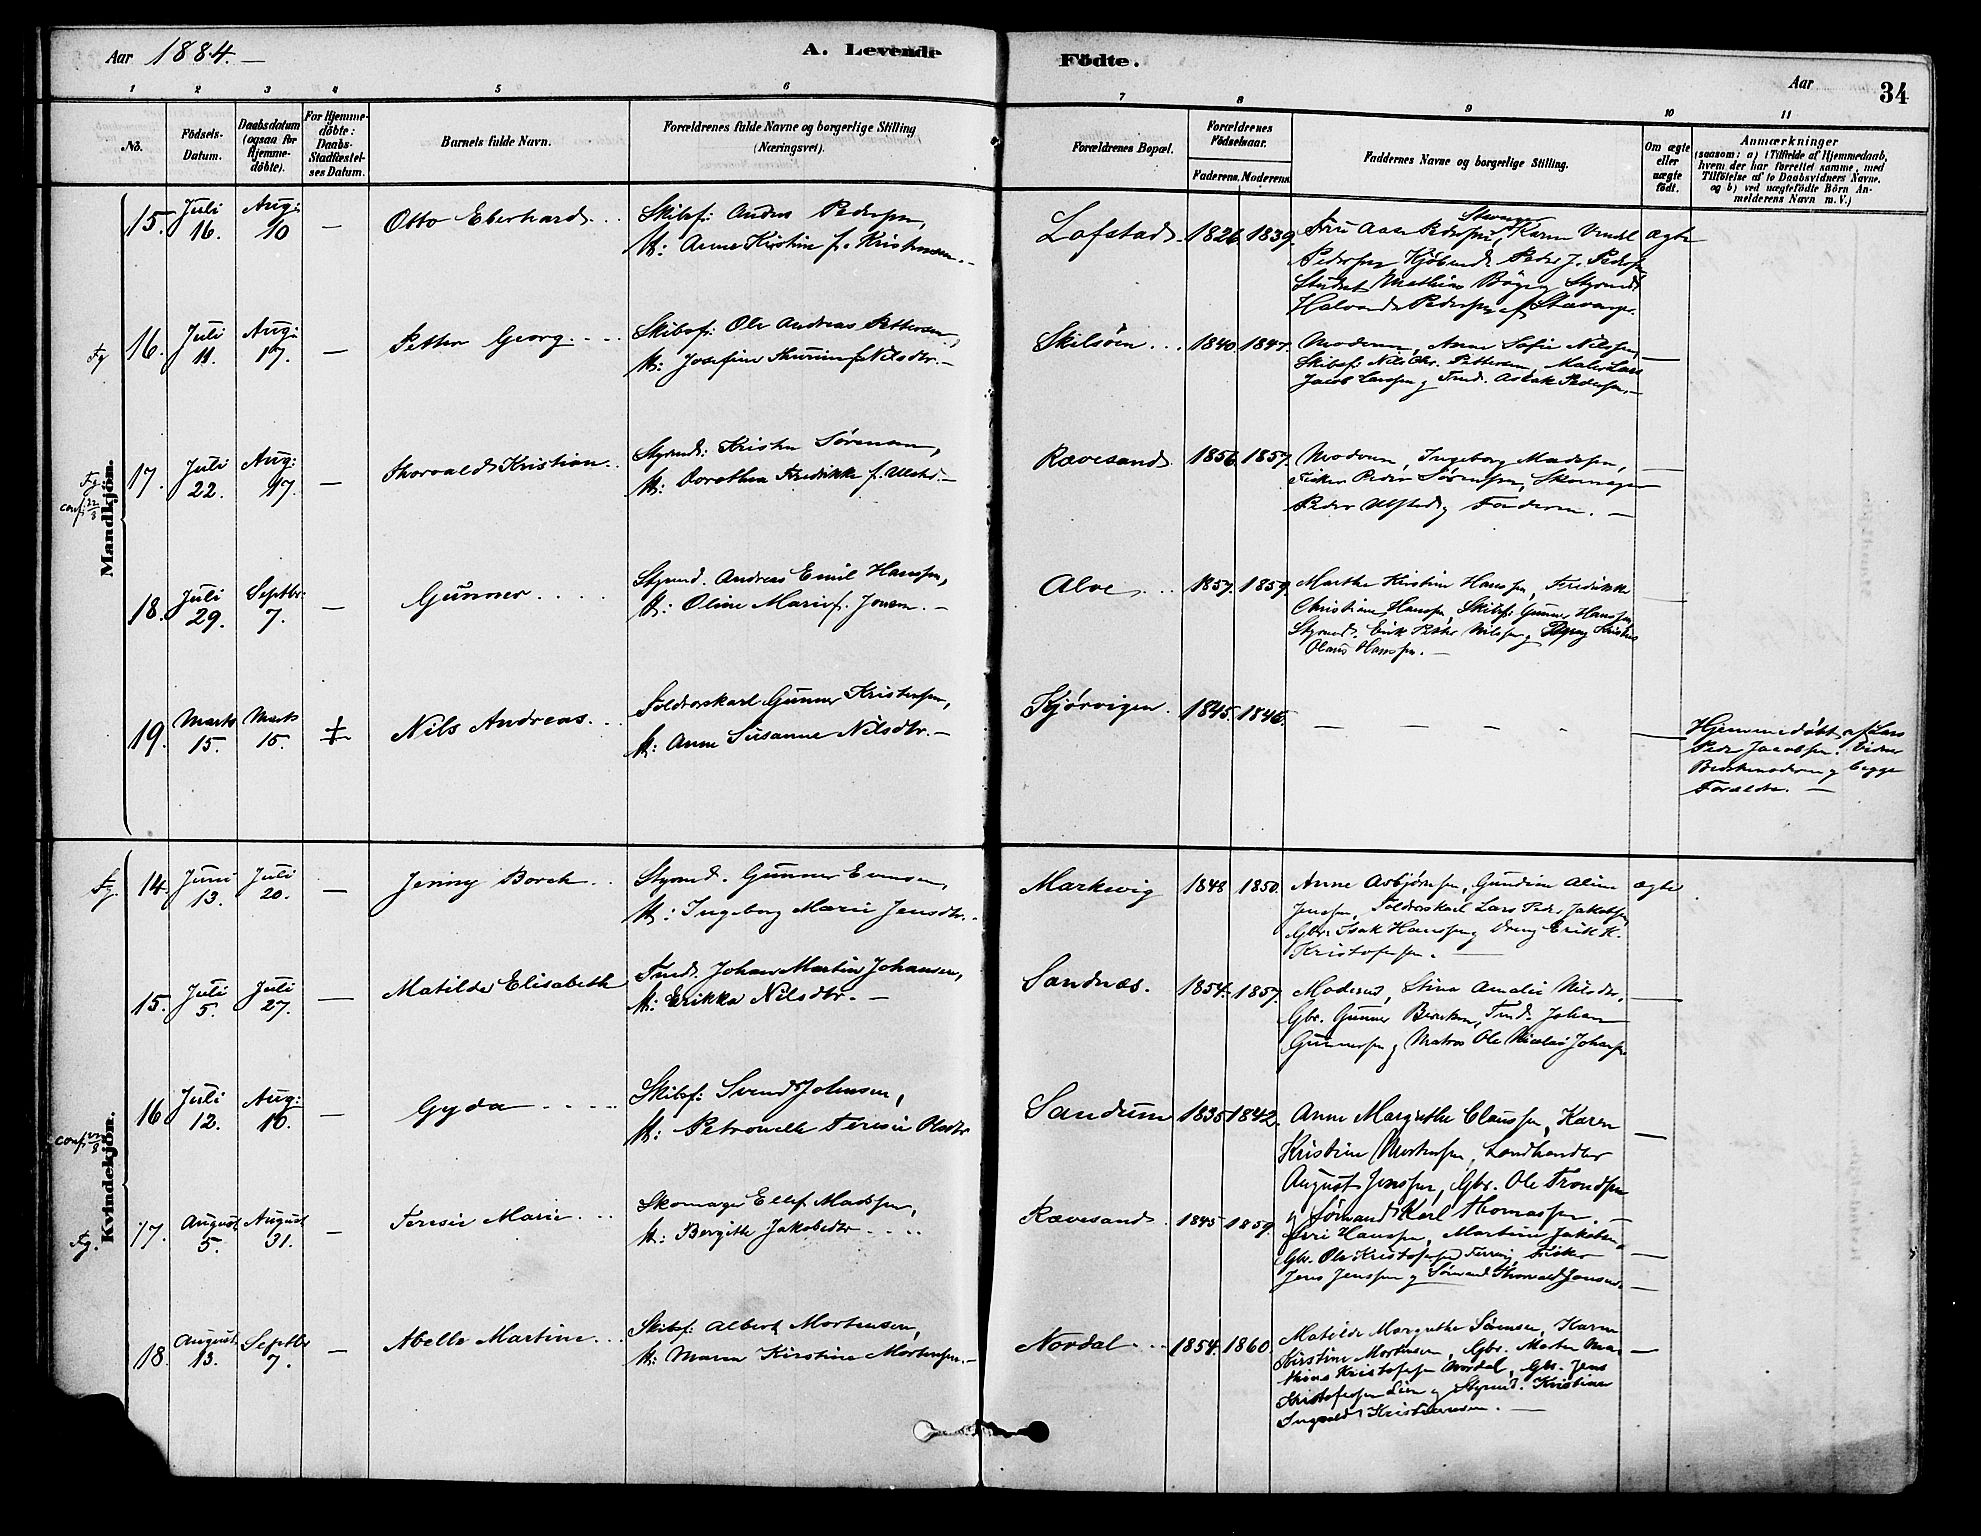 Aar 1884. — A. Levende Födte. Aar 34
1 2 3 4 5 6 7 8 9 10 11
No. Födsels-Datum. Daabsdatum (ogsaa for Hjemmedöbte). For Hjemmedöbte: Daabs-Stadfæstelses Datum. Barnets fulde Navn. Forældrenes fulde Navne og borgerlige Stilling (Næringsvei). Forældrenes Bopæl. Forældrenes Födselsaar. Faderens. Moderens. Faddernes Navne og borgerlige Stilling. Om ægte eller uægte födt. Anmærkninger (saasom: a) i Tilfælde af Hjemmedaab, hvem der har forrettet samme, med Tilföielse af to Daabsvidners Navne, og b) ved uægtefödte Börn Anmelderens Navn m. V.)
Mandkjön.
15. Juli 16. Aug: 10 — Otto Eberhard
Skibsf: Anders Pedersen,
H: Anne Kirstine f. Kristensen. —
Lofstad 1826 1839.
Fru Aase Pedersen, Stavanger, Karen
Pedersen Peder J. Pedersen
Student Mathias Styrmd.
Halvard Pedersen af Stavanger.
ægte
16. Juli 11. Aug: 17. — Petter Georg
Skibsf: Ole Andreas Pettersen,
H: Josefine f. Nilsdtr. —
Skilsöen 1840 1847.
Moderen, Anne Sofie Nilssen,
Skibsf: Nils Chr. Pettersen, Maler Lars
Jacob Larssen og Tmd. Aslak Pedersen. —
—
17. Juli 22. Aug: 17. — Thorvald Kristian
Styrmd: Kristen Sørensen,
H: Dorothea Fredrikke f. —
Rævesand 1856 1857.
Moderen, Ingeborg Madssen,
Fisker Peder Sørensen, Skomager
Peder Ulfsted og Faderen. —
—
18. Juli 29. Septbr: 7. — Gunner
Styrmd. Andreas Emil Hanssen,
H: Oline Marie f. Jensen. —
Alve 1857. 1859
Marthe Kirstine Hanssen, Fredrikke
Christiane Hanssen, Skibsf: Gunner Hanssen,
Styrmd. Erik Petter Nilssen og
Olaus Hanssen. —
—
19. Marts 15. Marts 15. Nils Andreas.
Soldverskarl Gunner Kristensen,
H: Anne Susanne Nilsdtr. —
Kjørvigen 1845. 1846.
— — — —
Hjemmedøbt af Lars
Peder Jacobsen. Vidner
Bedstemoderen og begge
Forældre. —
Kvindekjön.
14. Juni 13. Juli 20. — Jenny Borch
Styrmd. Gunner Evensen,
H: Ingeborg Marie Jensdtr.
Markevig 1848 1850.
Anne Asbjørnsen, Gundine Aline
Jenssen, Toldverskarl Lars Peder Jakobsen,
Gbr. Isak Hanssen og Dreng Erik K.
Kristofersen. —
ægte
15. Juli 5. Juli 27. — Matilde Elisabeth
Tmd. Johan Martin Johansen,
H: Erikka Nilsdtr. —
Sandnæs. 1854. 1857.
Moderen, Stina Amalie Nilsdtr.
Gbr. Gunner Tmd. Johan
Gunnerssen og Matros Ole Nicolai Johansen
—
16 Juli 12. Aug: 10. — Gyda
Skibsf: Svend Johnsen,
H: Petronelle Teresie Olsdtr
Sandum 1835 1842.
Anne Margrethe Claussen, Karen
Kristine Mortensen, Landhandler
August Jenssen, Gbr. Ole Trondsen
og Sømand Karl Thomassen. —
—
17. August 5. August 31. — Teresie Marie
Skomager Ellef Madssen,
H: Bergitte Jakobsdtr
Rævesand 1845 1859.
Hanssen, Martine Jakobsen,
Gbr. Ole Kristofersen Fisker
Jens Jenssen og Sømand Thorvald Jensen. —
—
18. August 13. Septbr 7. — Abelle Martine
Skibsf: Albert Mortensen,
H: Maren Kirstine Mortensen. —
Nordal 1854. 1860
Matilde Margrethe Sørensen, Karen
Kirstine Mortensen, Gbr. Morten
Kristofersen Nordal, Gbr. Jens
Kristofersen Lien og Styrmd. Kristian
Ingvald Kristiansen. —
—